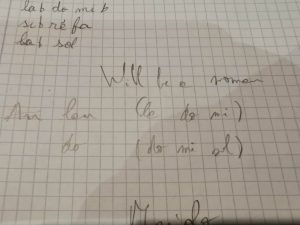 lab do mib
sib ré fa
lab sol
Will be a woman
(la do mi)
do (do mi sol)